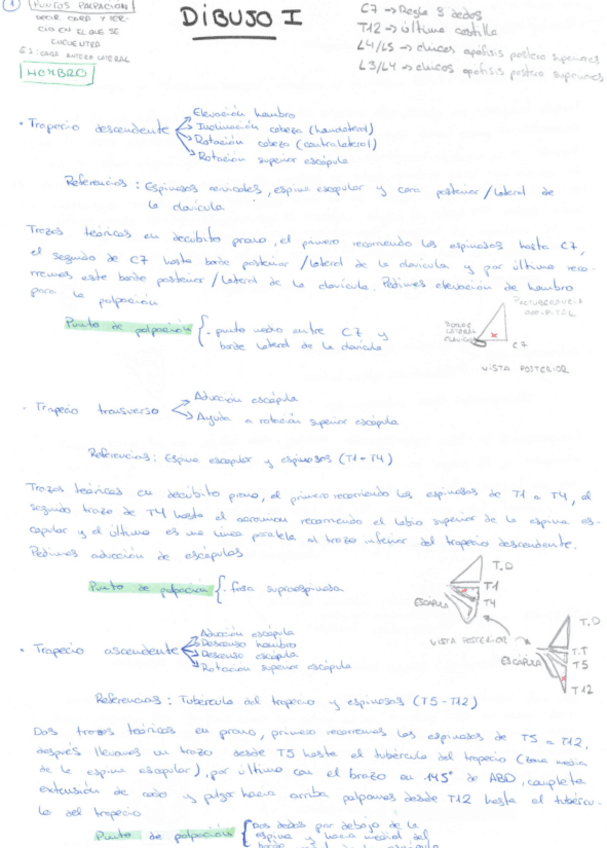 ① PUNTOS PALPACIÓN
DECIR CARA Y TER-
CIO EN EL QUE SE
ENCUENTRA
EJ: CARA ANTERO LATERAL
HOMBRO
DIBUJO I
C7 → Regla 3 dedos
T12 → última costilla
L4/L5 → chucos apófisis postero superiores
L3/L4 → chucos apófisis postero superiores
• Trapecio descendente
Elevación hombro
Inclinación cabeza (homolateral)
Rotación cabeza (contralateral)
Rotación superior escápula
Referencias: Espinosos cervicales, espina escapular y cara posterior/lateral de
la clavícula
Trazos teóricos en decúbito prono, el primero recorriendo los espinosos hasta C7,
el segundo de C7 hasta borde posterior/lateral de la clavícula y por último reco-
rremos este borde posterior/lateral de la clavícula. Pedimos elevación de hombro
para la palpación
Punto de palpación { - punto medio entre C7 y
borde lateral de la clavícula
PROTUBERANCIA
OCCIPITAL
BORDE
LATERAL
CLAVÍCULA
C7
VISTA POSTERIOR
• Trapecio transverso
Aducción escápula
Ayuda a rotación superior escápula
Referencias: Espina escapular y espinosos (T1-T4)
Trazos teóricos en decúbito prono, el primero recorriendo los espinosos de T1 a T4, el
segundo trazo de T4 hasta el acromion recorriendo el labio superior de la espina es-
capular y el último es una línea paralela al trazo inferior del trapecio descendente.
Pedimos aducción de escápulas
Punto de palpación { - fosa supraespinosa
T.D
T1
T4
ESCÁPULA
VISTA POSTERIOR
T.D
T.T
T5
T12
ESCÁPULA
• Trapecio ascendente
Aducción escápula
Descenso hombro
Descenso escápula
Rotación superior escápula
Referencias: Tubérculo del trapecio y espinosos (T5-T12)
Dos trazos teóricos en prono, primero recorremos los espinosos de T5 a T12,
después llevamos un trazo desde T5 hasta el tubérculo del trapecio (zona media
de la espina escapular), por último con el brazo en 145° de ABD, completa
extensión de codo y pulgar hacia arriba palpamos desde T12 hasta el tubércu-
lo del trapecio
Punto de palpación { Dos dedos por debajo de la
espina y hacia medial del